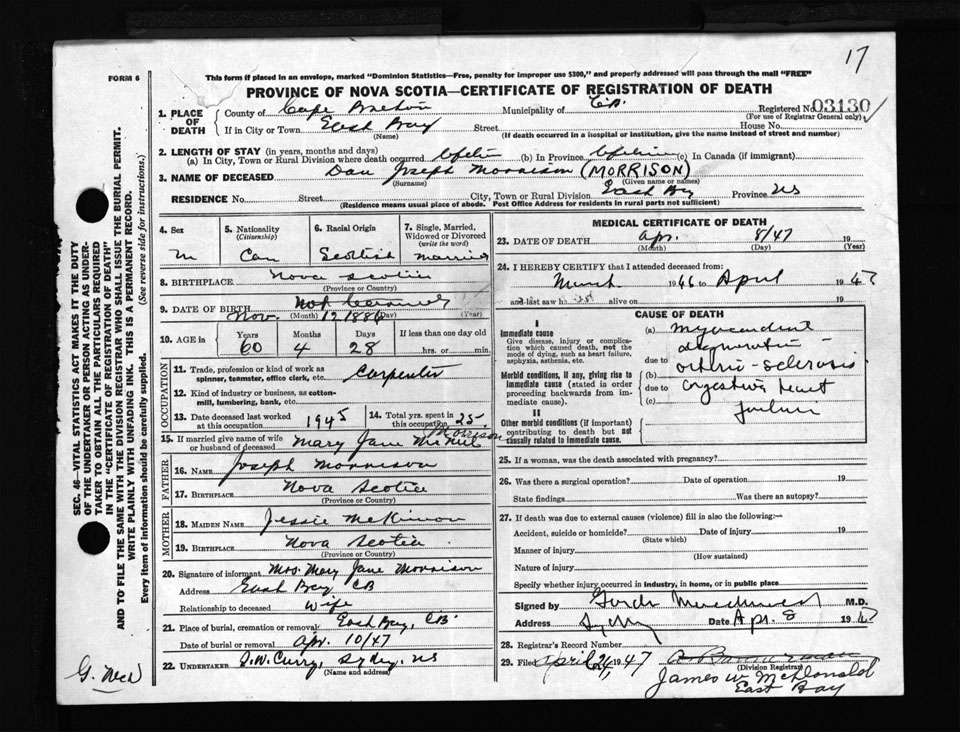 17
FORM 6
This form if placed in an envelope, marked "Dominion Statistics—Free, penalty for improper use $300," and properly addressed will pass through the mail "FREE"
PROVINCE OF NOVA SCOTIA—CERTIFICATE OF REGISTRATION OF DEATH
1. PLACE OF DEATH County of Cape Breton Municipality of C.B. Registered No. 03130
(For use of Registrar General only)
If in City or Town East Bay Street House No.
(Name) (If death occurred in a hospital or institution, give the name instead of street and number)
2. LENGTH OF STAY (in years, months and days)
(a) In City, Town or Rural Division where death occurred Lifetime (b) In Province Lifetime (c) In Canada (if immigrant)
3. NAME OF DECEASED Dan Joseph Morrison (MORRISON)
(Surname) (Given name or names)
RESIDENCE No. Street City, Town or Rural Division East Bay Province NS
(Residence means usual place of abode. Post Office Address for residents in rural parts not sufficient)
4. Sex M
5. Nationality (Citizenship) Can
6. Racial Origin Scottish
7. Single, Married, Widowed or Divorced (write the word) Married
8. BIRTHPLACE Nova Scotia
(Province or Country)
9. DATE OF BIRTH Nov. 12 1886
(Month) (Day) (Year)
10. AGE in Years 60 Months 4 Days 28 If less than one day old hrs. or min.
OCCUPATION
11. Trade, profession or kind of work as spinner, teamster, office clerk, etc. Carpenter
12. Kind of industry or business, as cotton-mill, lumbering, bank, etc.
13. Date deceased last worked at this occupation 1945
14. Total yrs. spent in this occupation 25
15. If married give name of wife or husband of deceased Mary Jane Morrison
FATHER
16. NAME Joseph Morrison
17. BIRTHPLACE Nova Scotia
(Province or Country)
MOTHER
18. MAIDEN NAME Jessie McKinnon
19. BIRTHPLACE Nova Scotia
(Province or Country)
20. Signature of informant Mrs. Mary Jane Morrison
Address East Bay, CB
Relationship to deceased Wife
21. Place of burial, cremation or removal East Bay, CB
Date of burial or removal Apr. 10/47
22. UNDERTAKER J.W. Curry, Sydney, NS
(Name and address)
MEDICAL CERTIFICATE OF DEATH
23. DATE OF DEATH Apr. 8/47 19
(Month) (Day) (Year)
24. I HEREBY CERTIFY that I attended deceased from:
March 1946 to April 1947
and last saw h alive on 19
CAUSE OF DEATH
I
Immediate cause
Give disease, injury or complication which caused death, not the mode of dying, such as heart failure, asphyxia, asthenia, etc.
Morbid conditions, if any, giving rise to immediate cause (stated in order proceeding backwards from immediate cause).
II
Other morbid conditions (if important) contributing to death but not causally related to immediate cause.
(a) Myocardial
degeneration -
due to
(b) arterio-sclerosis
due to
(c) Congestive heart
failure
25. If a woman, was the death associated with pregnancy?
26. Was there a surgical operation? Date of operation 19
State findings Was there an autopsy?
27. If death was due to external causes (violence) fill in also the following:—
Accident, suicide or homicide? Date of injury 19
(State which)
Manner of injury
(How sustained)
Nature of injury
Specify whether injury occurred in industry, in home, or in public place
Signed by M.D.
Address Sydney Date Apr. 8 1947
28. Registrar's Record Number
29. Filed April 24, 1947
(Division Registrar)
James W McDonald
East Bay
SEC. 46—VITAL STATISTICS ACT MAKES IT THE DUTY OF THE UNDERTAKER OR PERSON ACTING AS UNDERTAKER TO OBTAIN ALL THE PARTICULARS REQUIRED IN THE "CERTIFICATE OF REGISTRATION OF DEATH" AND TO FILE THE SAME WITH THE DIVISION REGISTRAR WHO SHALL ISSUE THE BURIAL PERMIT.
WRITE PLAINLY WITH UNFADING INK. THIS IS A PERMANENT RECORD.
Every item of information should be carefully supplied. (See reverse side for instructions.)